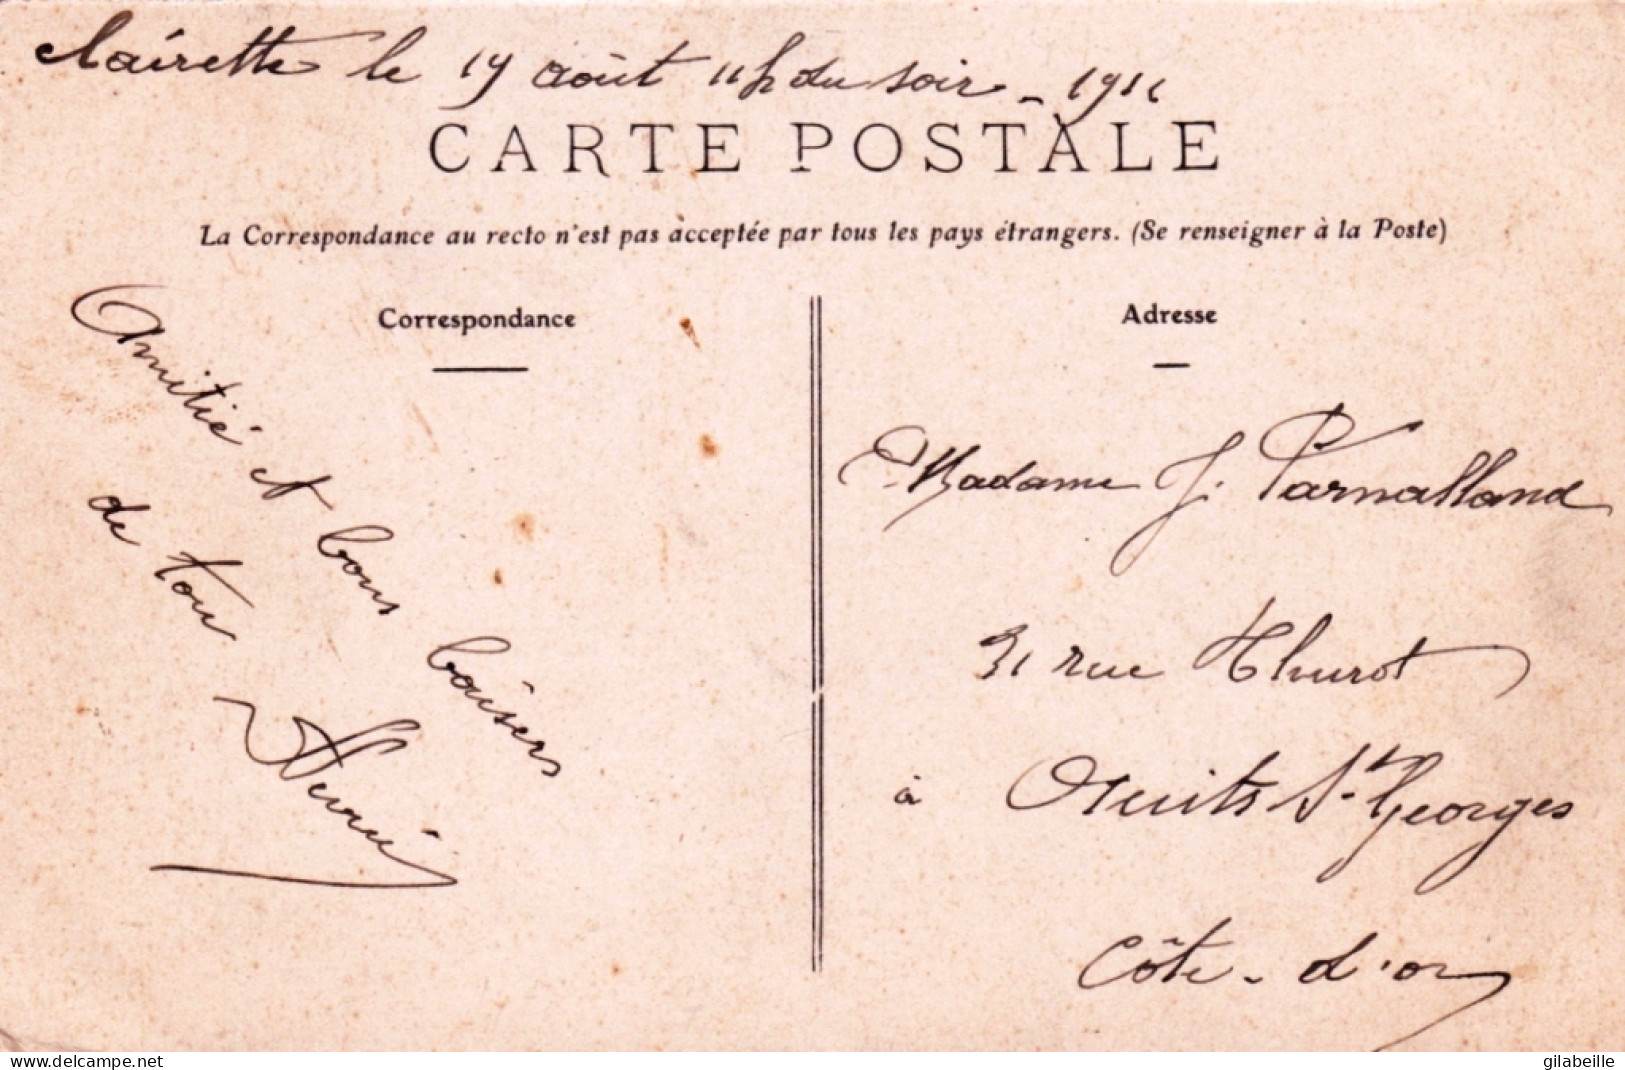 Clairette le 19 août 11h du soir - 1911
CARTE POSTALE
La Correspondance au recto n'est pas acceptée par tous les pays étrangers. (Se renseigner à la Poste)
Correspondance
Amitié et bons baisers
de tou
Adresse
Madame J. Parnalland
31 rue Thurot
à Nuits St-Georges
Côte-d'or
www.delcampe.net
gilabeille